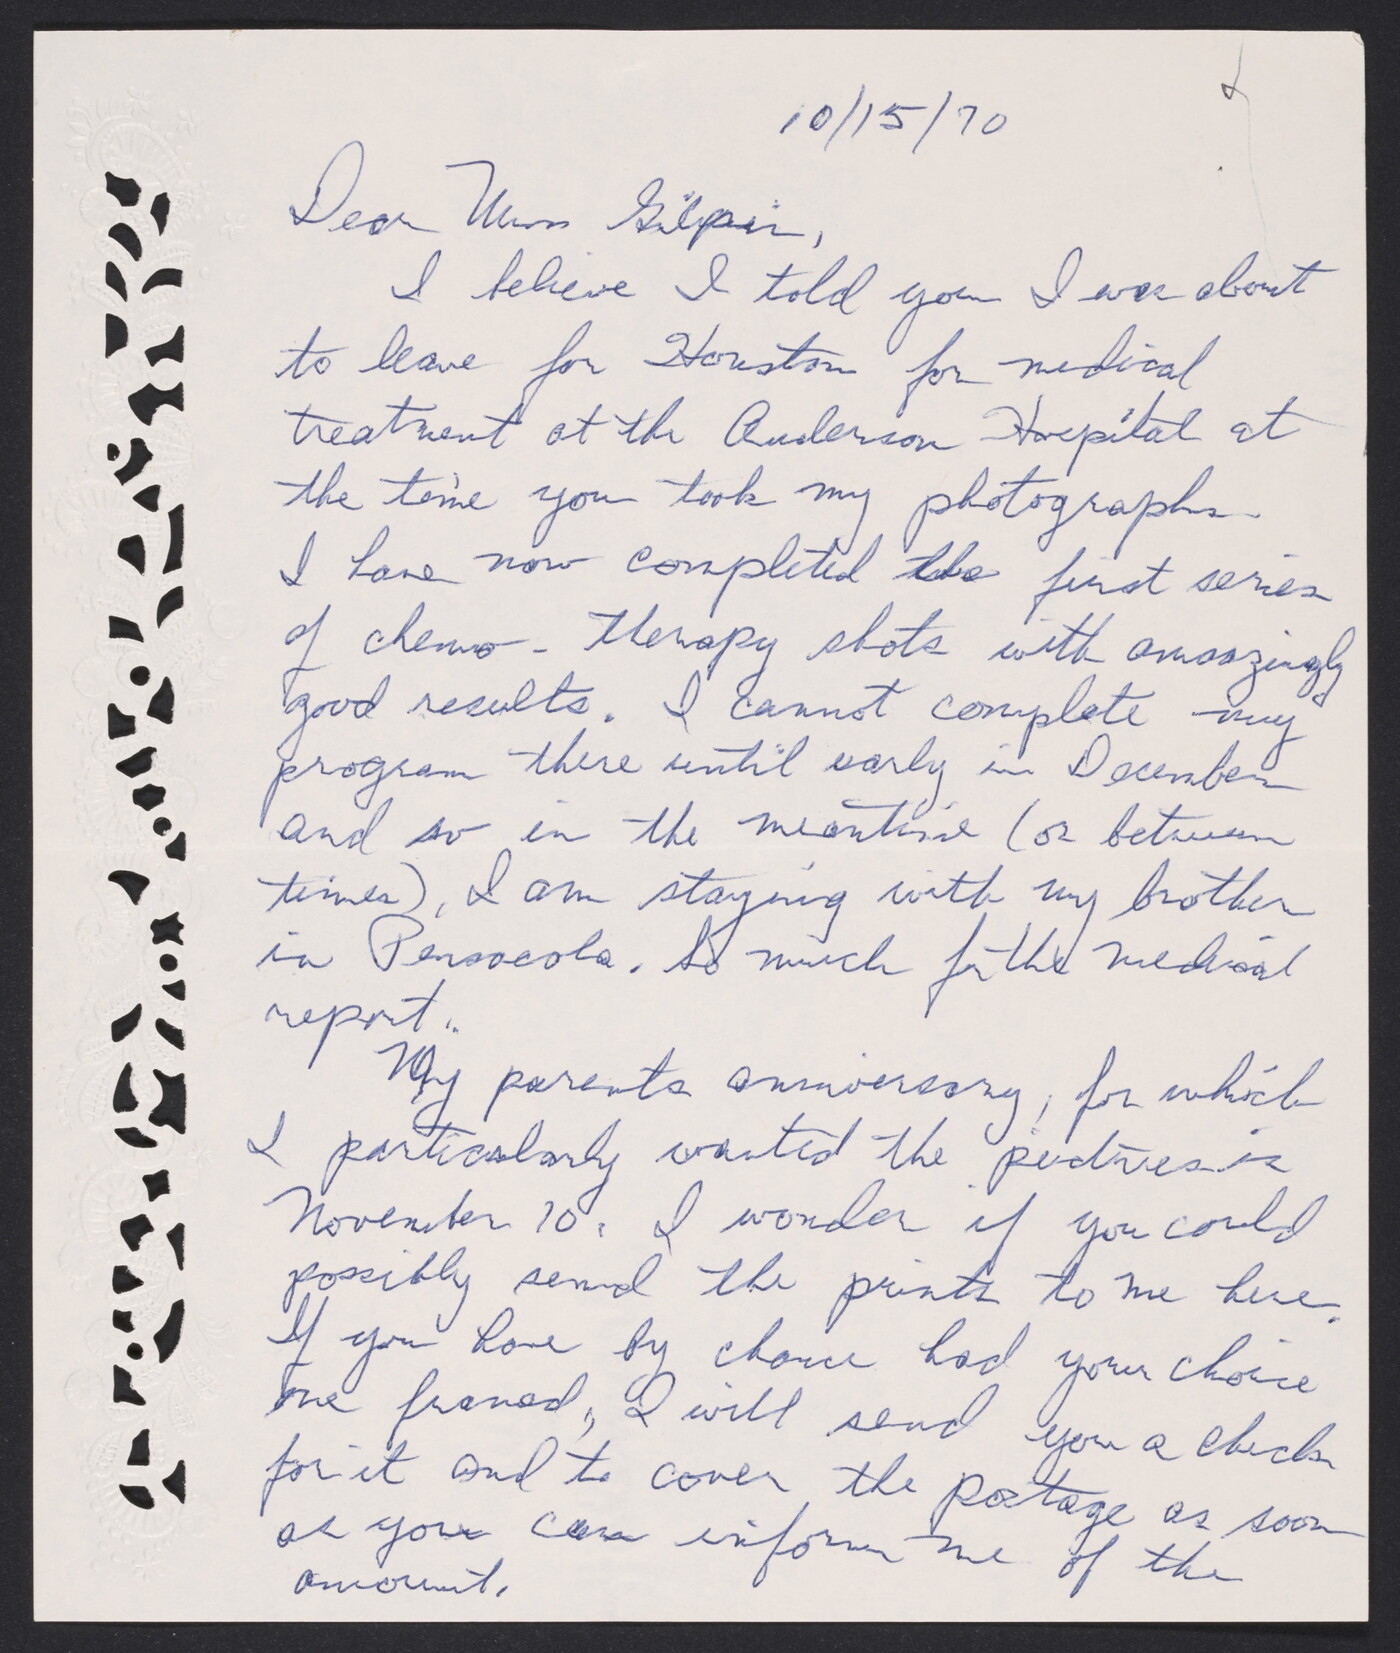 10/15/70
Dear Miss Gilpin,
I believe I told you I was about
to leave for Houston for medical
treatment at the Anderson Hospital at
the time you took my photographs.
I have now completed the first series
of chemo-therapy shots with amazingly
good results. I cannot complete my
program there until early in December
and so in the meantime (or between
times), I am staying with my brother
in Pensacola. So much for the medical
report.
My parents anniversary, for which
I particularly wanted the pictures is
November 10. I wonder if you could
possibly send the prints to me here.
If you have by chance had your choice
one framed, I will send you a check
for it and to cover the postage as soon
as you can inform me of the
amount.